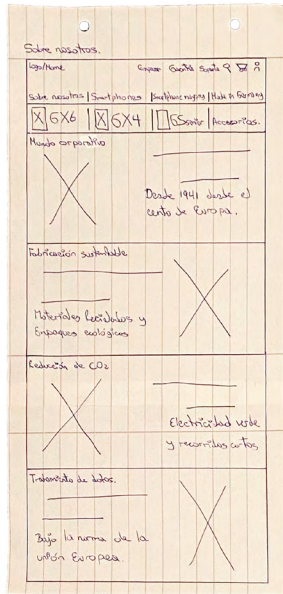 Sobre nosotros.
Logo/Home Empresa Gigaset Soporte
Sobre nosotros | Smartphones | Smartphone mayores | Made in Germany
GX6 GX4 GS senior Accesorios.
Mundo corporativo
Desde 1941 desde el
cento de Europa.
Fabricación sustentable
Materiales Reciclados y
Empaques ecológicos
Reducción de CO2
Electricidad verde
y recorridos cortos
Tratamiento de datos.
Bajo la norma de la
unión Europea.